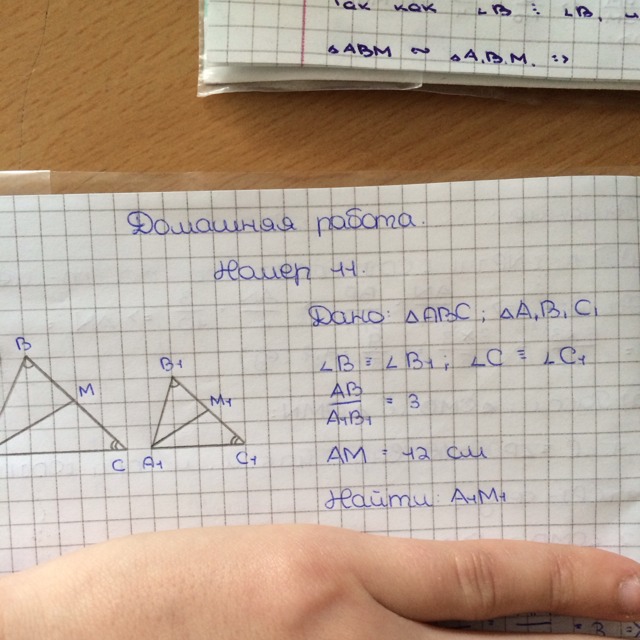 так как ∠B = ∠B₁
△ABM ~ △A₁B₁M₁ =>
Домашная работа.
Намер 11.
Дано: △ABC; △A₁B₁C₁
∠B = ∠B₁; ∠C = ∠C₁
AB
A₁B₁
= 3
AM = 12 см
Найти: A₁M₁
B
M
C
B₁
M₁
A₁
C₁